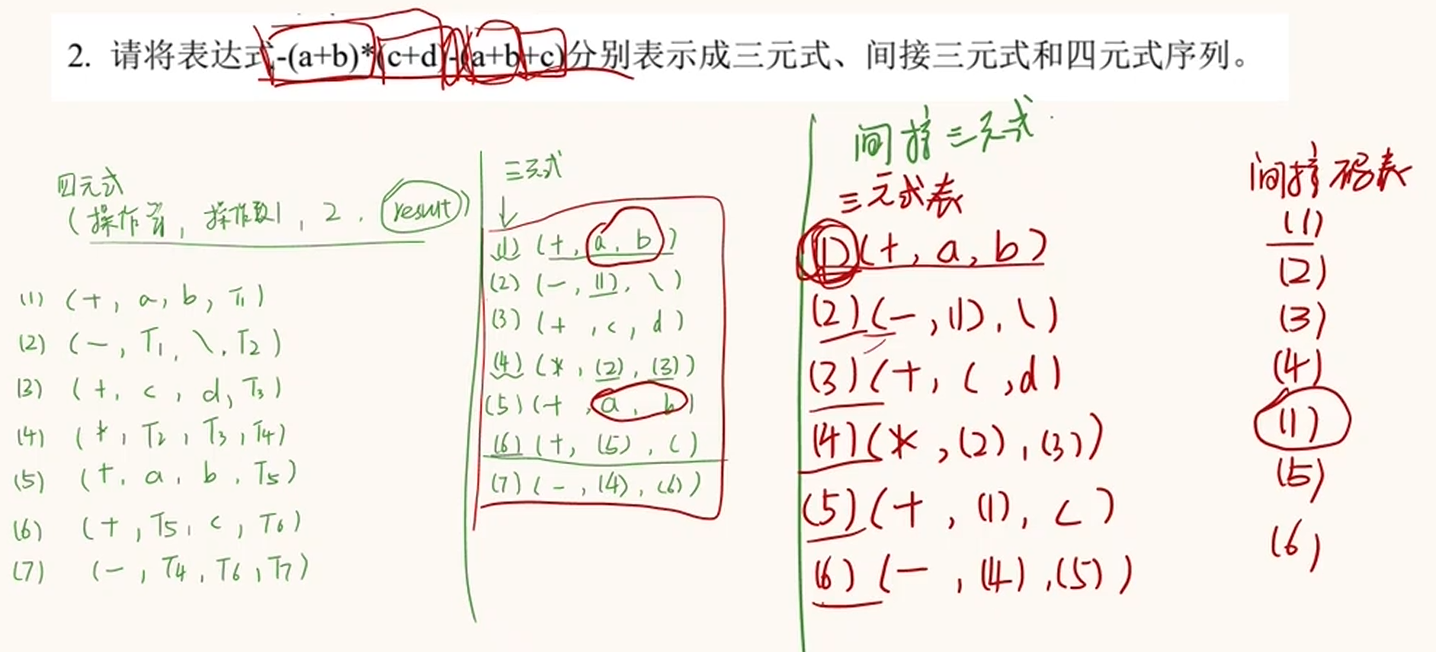 2. 请将表达式-(a+b)*(c+d)-(a+b+c)分别表示成三元式、间接三元式和四元式序列。
四元式
(操作符, 操作数1, 2, result)
(1) (+, a, b, T1)
(2) (-, T1, \, T2)
(3) (+, c, d, T3)
(4) (*, T2, T3, T4)
(5) (+, a, b, T5)
(6) (+, T5, c, T6)
(7) (-, T4, T6, T7)
三元式
(1) (+, a, b)
(2) (-, (1), \)
(3) (+, c, d)
(4) (*, (2), (3))
(5) (+, a, b)
(6) (+, (5), c)
(7) (-, (4), (6))
间接三元式
三元式表
(1) (+, a, b)
(2) (-, (1), \)
(3) (+, c, d)
(4) (*, (2), (3))
(5) (+, (1), c)
(6) (-, (4), (5))
间接码表
(1)
(2)
(3)
(4)
(1)
(5)
(6)